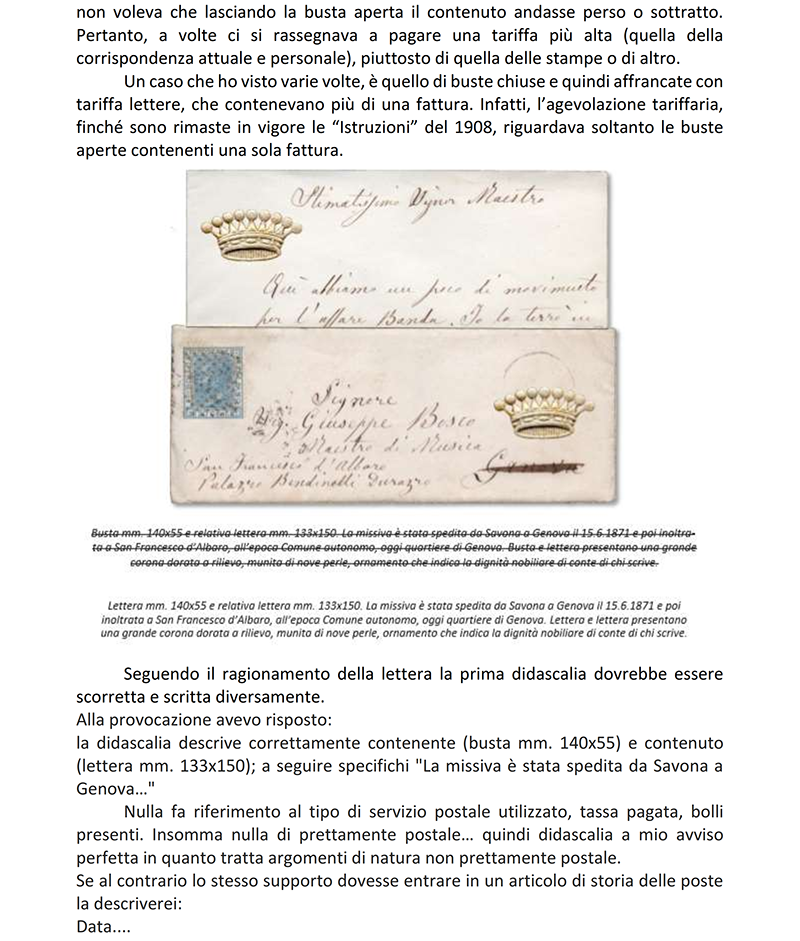 non voleva che lasciando la busta aperta il contenuto andasse perso o sottratto.
Pertanto, a volte ci si rassegnava a pagare una tariffa più alta (quella della
corrispondenza attuale e personale), piuttosto di quella delle stampe o di altro.
Un caso che ho visto varie volte, è quello di buste chiuse e quindi affrancate con
tariffa lettere, che contenevano più di una fattura. Infatti, l’agevolazione tariffaria,
finché sono rimaste in vigore le “Istruzioni” del 1908, riguardava soltanto le buste
aperte contenenti una sola fattura.
Stimatissimo Signor Maestro
Quì abbiamo un poco di movimento
per l'affare Banda. Io la terrò in
Signore
Sig. Giuseppe Bosco
Maestro di Musica
San Francesco d'Albaro
Palazzo Bendinelli Durazzo
Genova
Busta mm. 140x55 e relativa lettera mm. 133x150. La missiva è stata spedita da Savona a Genova il 15.6.1871 e poi inoltra-
ta a San Francesco d’Albaro, all’epoca Comune autonomo, oggi quartiere di Genova. Busta e lettera presentano una grande
corona dorata a rilievo, munita di nove perle, ornamento che indica la dignità nobiliare di conte di chi scrive.
Lettera mm. 140x55 e relativa lettera mm. 133x150. La missiva è stata spedita da Savona a Genova il 15.6.1871 e poi
inoltrata a San Francesco d’Albaro, all’epoca Comune autonomo, oggi quartiere di Genova. Lettera e lettera presentano
una grande corona dorata a rilievo, munita di nove perle, ornamento che indica la dignità nobiliare di conte di chi scrive.
Seguendo il ragionamento della lettera la prima didascalia dovrebbe essere
scorretta e scritta diversamente.
Alla provocazione avevo risposto:
la didascalia descrive correttamente contenente (busta mm. 140x55) e contenuto
(lettera mm. 133x150); a seguire specifichi "La missiva è stata spedita da Savona a
Genova…"
Nulla fa riferimento al tipo di servizio postale utilizzato, tassa pagata, bolli
presenti. Insomma nulla di prettamente postale… quindi didascalia a mio avviso
perfetta in quanto tratta argomenti di natura non prettamente postale.
Se al contrario lo stesso supporto dovesse entrare in un articolo di storia delle poste
la descriverei:
Data....